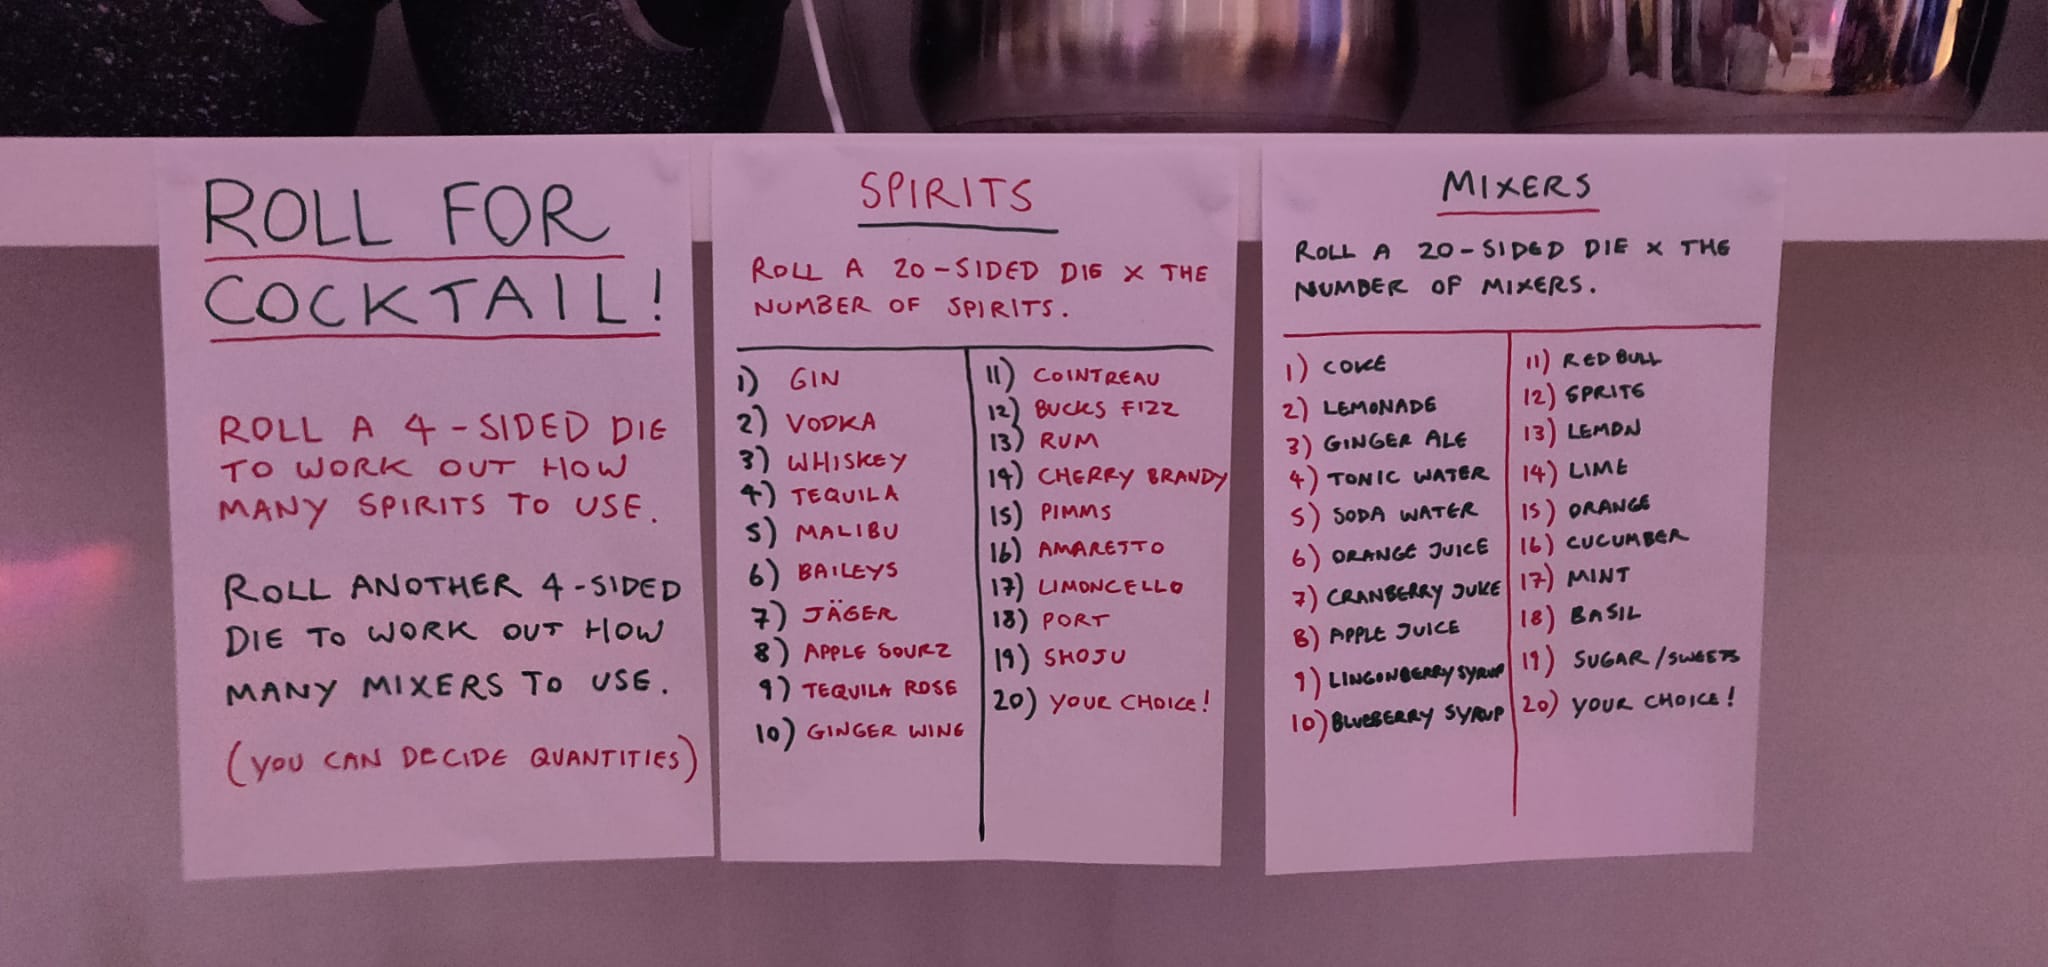 ROLL FOR
COCKTAIL!
ROLL A 4-SIDED DIE
TO WORK OUT HOW
MANY SPIRITS TO USE.
ROLL ANOTHER 4-SIDED
DIE TO WORK OUT HOW
MANY MIXERS TO USE.
(YOU CAN DECIDE QUANTITIES)
SPIRITS
ROLL A 20-SIDED DIE X THE
NUMBER OF SPIRITS.
1) GIN
2) VODKA
3) WHISKEY
4) TEQUILA
5) MALIBU
6) BAILEYS
7) JÄGER
8) APPLE SOURZ
9) TEQUILA ROSE
10) GINGER WINE
11) COINTREAU
12) BUCKS FIZZ
13) RUM
14) CHERRY BRANDY
15) PIMMS
16) AMARETTO
17) LIMONCELLO
18) PORT
19) SHOJU
20) YOUR CHOICE!
MIXERS
ROLL A 20-SIDED DIE X THE
NUMBER OF MIXERS.
1) COKE
2) LEMONADE
3) GINGER ALE
4) TONIC WATER
5) SODA WATER
6) ORANGE JUICE
7) CRANBERRY JUICE
8) APPLE JUICE
9) LINGONBERRY SYRUP
10) BLUEBERRY SYRUP
11) RED BULL
12) SPRITE
13) LEMON
14) LIME
15) ORANGE
16) CUCUMBER
17) MINT
18) BASIL
19) SUGAR/SWEETS
20) YOUR CHOICE!